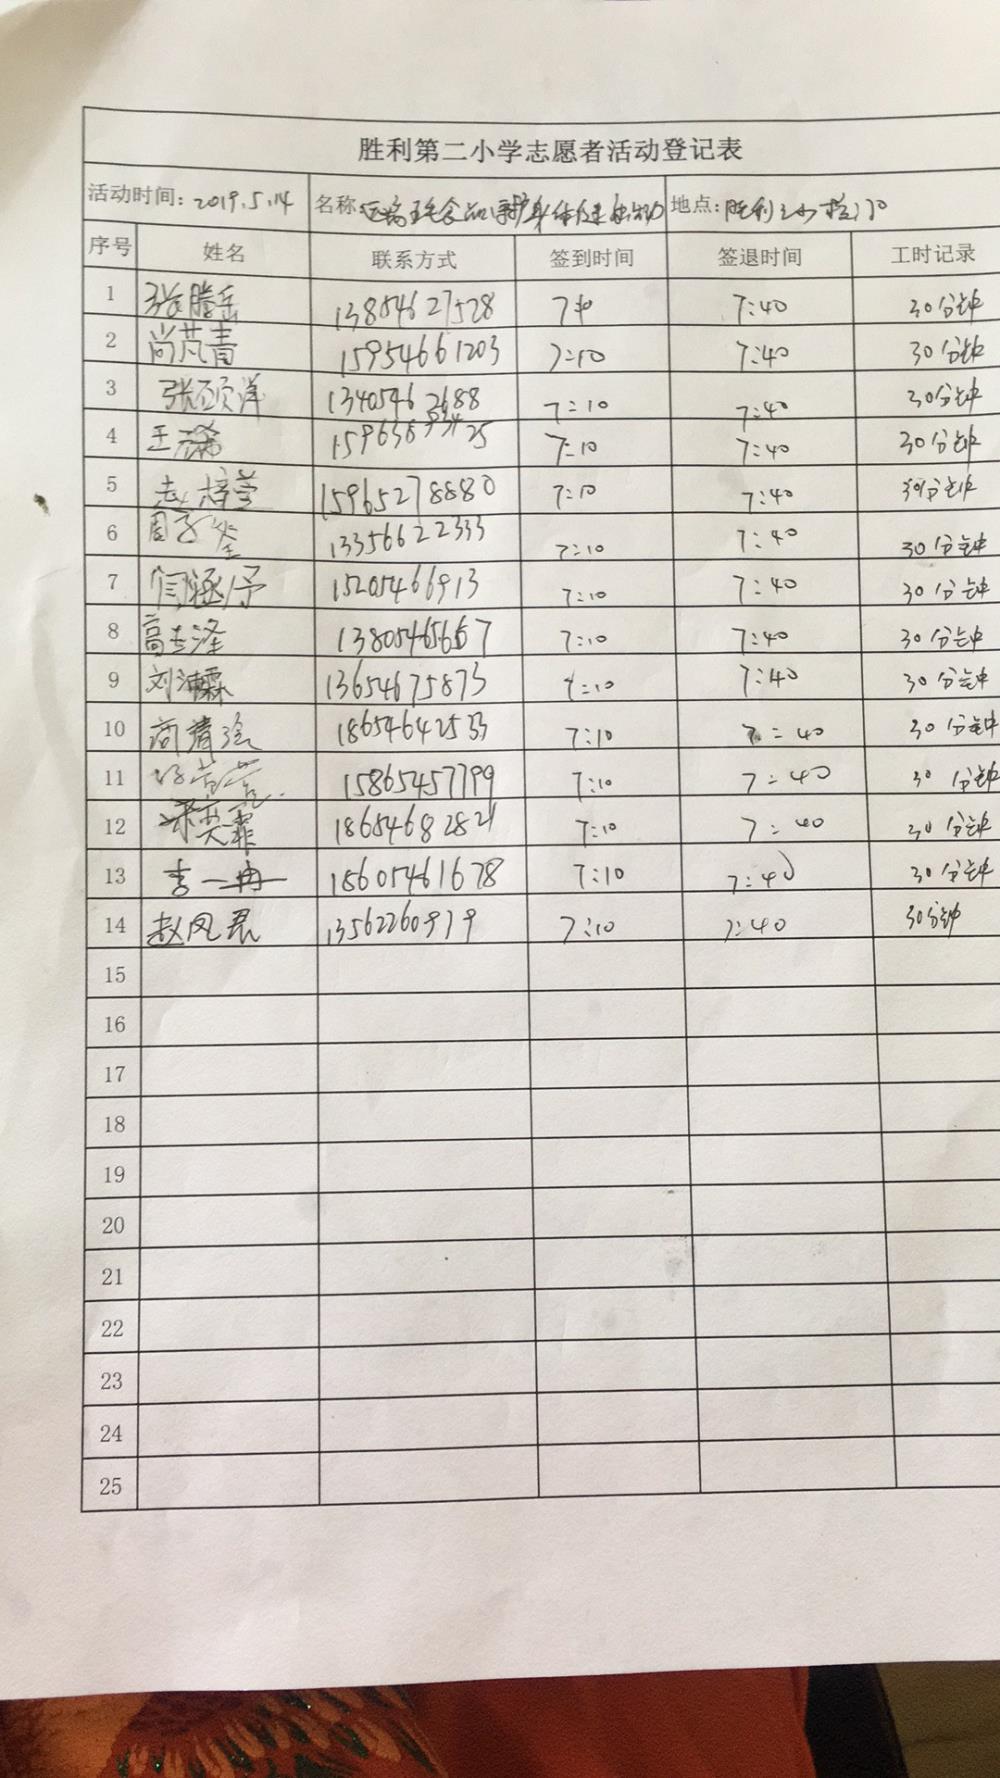 胜利第二小学志愿者活动登记表
活动时间: 2019.5.14 名称: 远离五毛食品 身体健康 活动 地点: 胜利二小校门口
序号 姓名 联系方式 签到时间 签退时间 工时记录
1 张腾岳 13854627528 7:10 7:40 30分钟
2 尚芃青 15954661203 7:10 7:40 30分钟
3 张颐洋 13405462688 7:10 7:40 30分钟
4 王 7:10 7:40 30分钟
5 孟梓莹 15965278880 7:10 7:40 30分钟
6 周子 13356622333 7:10 7:40 30分钟
7 闫涵予 15205466913 7:10 7:40 30分钟
8 高志泽 13805465667 7:10 7:40 30分钟
9 刘沛霖 13654675873 7:10 7:40 30分钟
10 商清涵 18654642533 7:10 7:40 30分钟
11 15865457799 7:10 7:40 30分钟
12 宋奕霏 18654682821 7:10 7:40 30分钟
13 李一冉 18605461678 7:10 7:40 30分钟
14 赵凤君 13562260919 7:10 7:40 30分钟
15
16
17
18
19
20
21
22
23
24
25